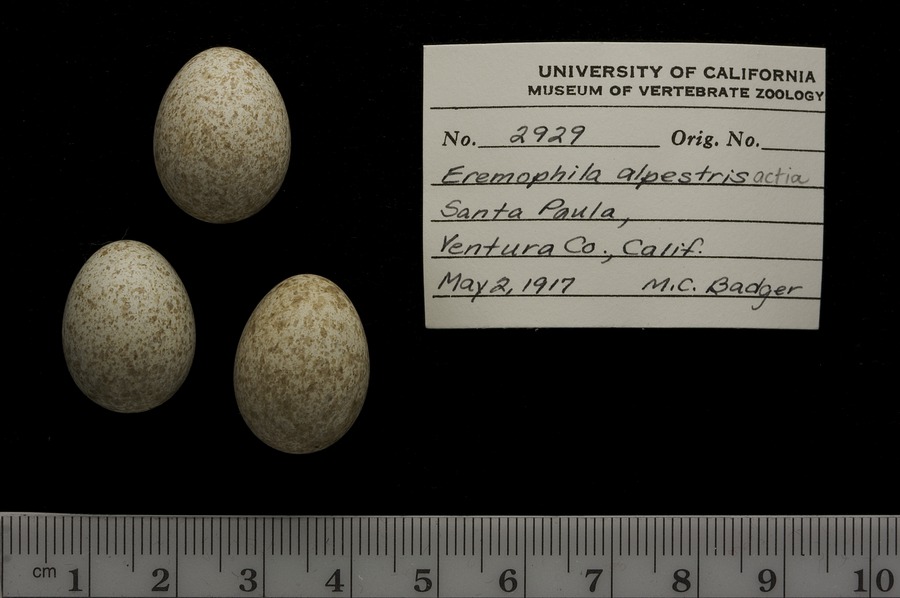 UNIVERSITY OF CALIFORNIA
MUSEUM OF VERTEBRATE ZOOLOGY
No. 2929 Orig. No.
Eremophila alpestris actia
Santa Paula,
Ventura Co., Calif.
May 2, 1917 M.C. Badger
cm 1 2 3 4 5 6 7 8 9 10